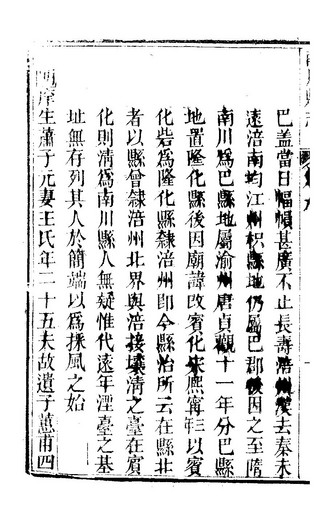 巴蓋當日幅幀甚廣不止長壽涪州漢去秦未
遠涪南均江州枳縣地仍屬巴郡後因之至隋
南川爲巴縣地屬渝州唐貞觀十一年分巴縣
地置隆化縣後因廟諱改賓化宋熙寧三以賓
化砦爲隆化縣隸涪州卽今縣治所云在縣北
者以縣曾隸涪州北界與涪接壤清之臺在賓
化則清爲南川縣人無疑惟代遠年湮臺之基
址無存列其人於簡端以爲採風之始
庠生蕭子元妻王氏年二十五夫故遺子蕙甫四